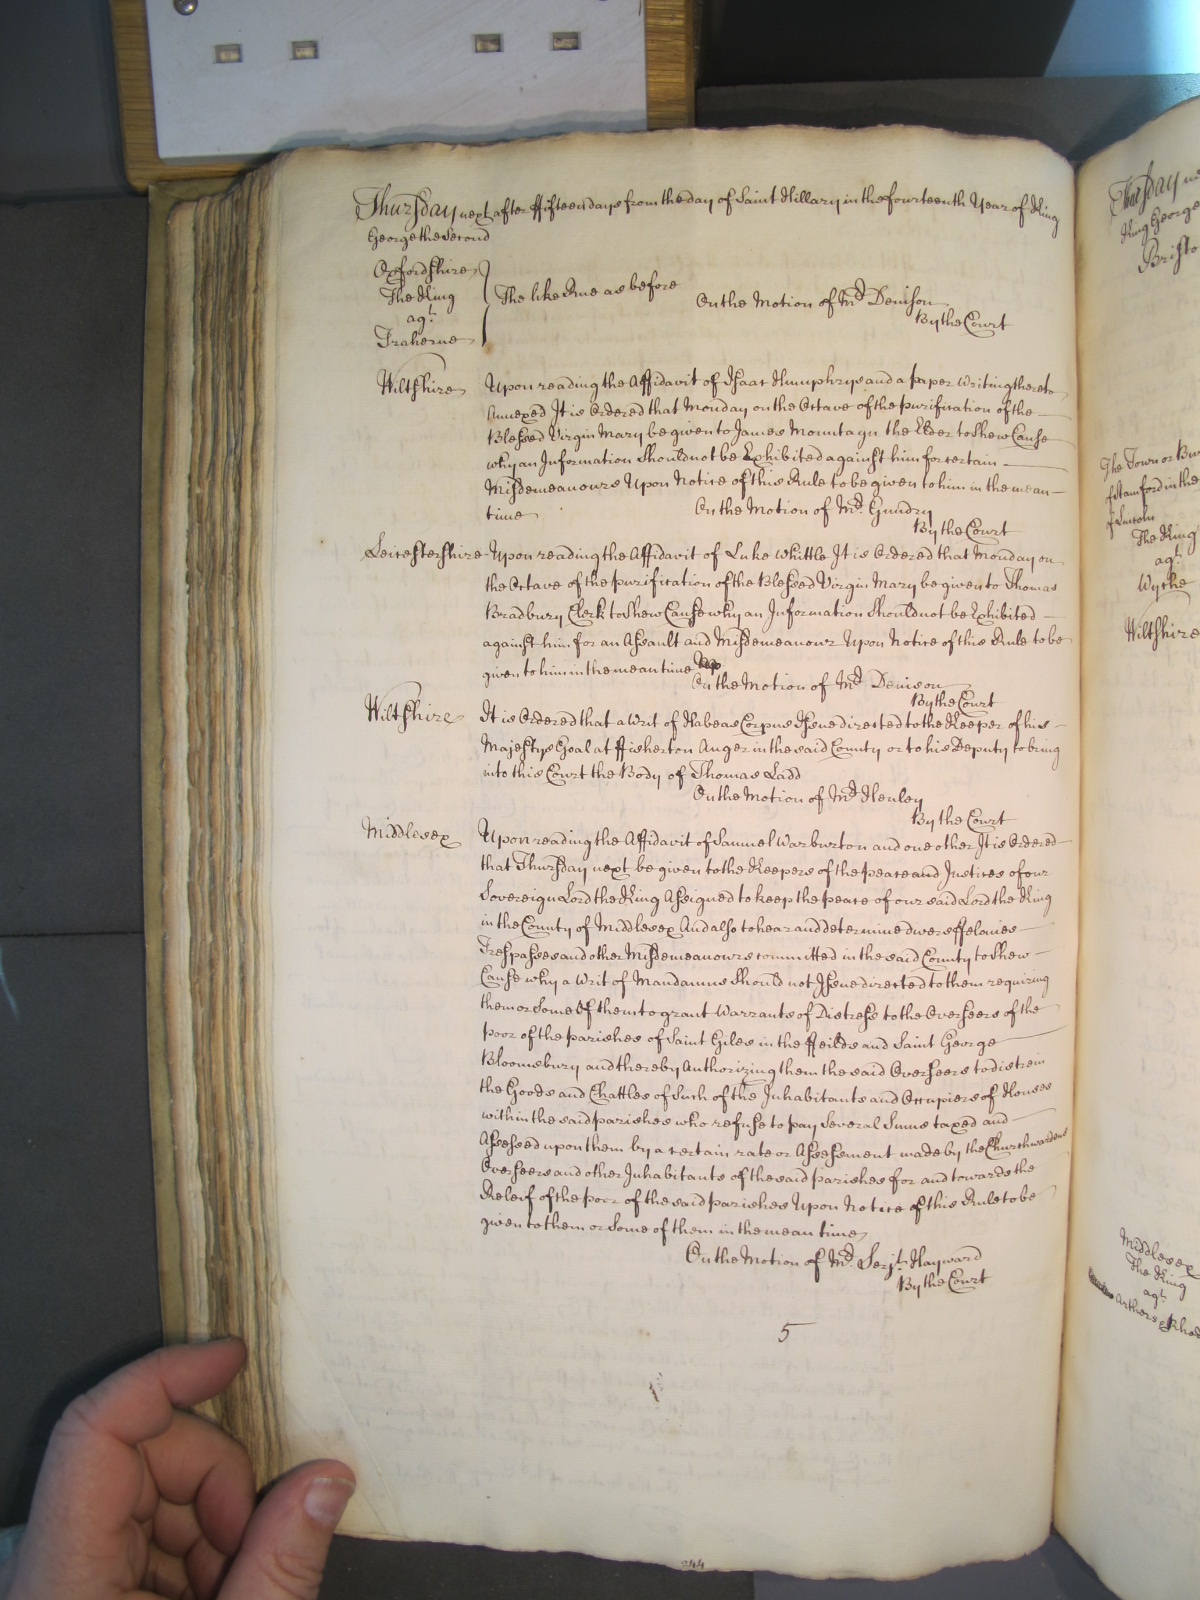 Thursday next after ffifteen days from the day of Saint Hillary in the fourteenth Year of King
George the Second
Oxfordshire
The King
agt.
Traherne
The like Rule as before
On the Motion of Mr. Denison
By the Court
Wiltshire
Upon reading the Affidavit of Isaac Humphrys and a paper writing thereto
Annexed It is Ordered that Monday on the Octave of the purification of the
Blessed Virgin Mary be given to James Mountagu the Elder to Shew Cause
why an Information Should not be Exhibited against him for certain
Misdemeanours Upon Notice of this Rule to be given to him in the mean
time
On the Motion of Mr. Gundry
By the Court
Leicestershire
Upon reading the Affidavit of Luke Whittle It is Ordered that Monday on
the Octave of the purification of the Blessed Virgin Mary be given to Thomas
Bradbury Clerk to Shew Cause why an Information Should not be Exhibited
against him for an Assault and Misdemeanour Upon Notice of this Rule to be
given to him in the mean time
On the Motion of Mr. Denison
By the Court
Wiltshire
It is Ordered that a Writ of Habeas Corpus Issue directed to the Keeper of his
Majestys Goal at ffisherton Anger in the said County or to his Deputy to bring
into this Court the Body of Thomas Ladd
On the Motion of Mr. Henley
By the Court
Middlesex
Upon reading the Affidavit of Samuel Warburton and one other It is Ordered
that Thursday next be given to the Keepers of the peace and Justices of our
Sovereign Lord the King Assigned to keep the peace of our said Lord the King
in the County of Middlesex And also to hear and determine divers ffelonies
Trespasses and other Misdemeanours committed in the said County to Shew
Cause why a Writ of Mandamus Should not Issue directed to them requiring
them or Some of them to grant Warrants of Distress to the Overseers of the
poor of the parishes of Saint Giles in the ffeilds and Saint George
Bloomsbury and thereby Authorizing them the said Overseers to distrein
the Goods and Chattles of Such of the Inhabitants and Occupiers of Houses
within the said parishes who refuse to pay Several Sums taxed and
Assessed upon them by a certain rate or Assessment made by the Churchwardens
Overseers and other Inhabitants of the said parishes for and towards the
Releif of the poor of the said parishes Upon Notice of this Rule to be
given to them or Some of them in the mean time
On the Motion of Mr. Serjt. Hayward
By the Court
5
244
Thursday
King George
Bristo
The Town or
Stamford in the
of Lincoln
The King
agt.
Wyche
Wiltshire
Middlesex
The King
agt.